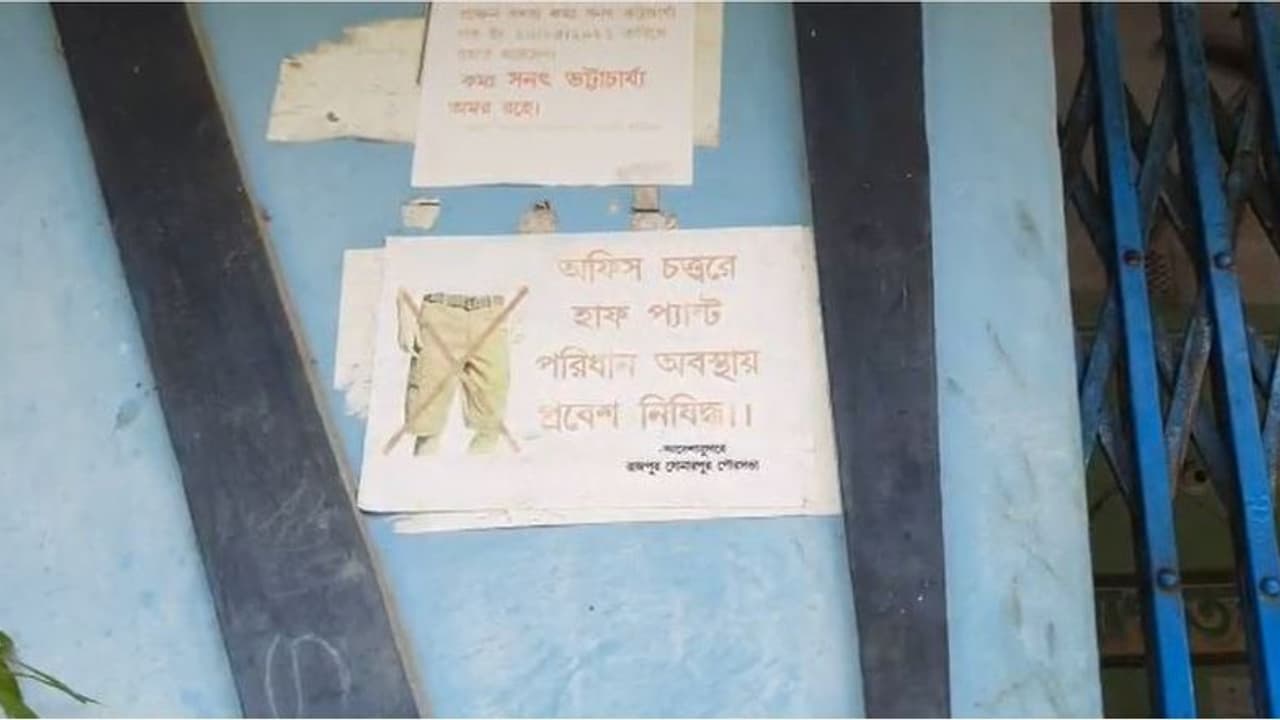 কমঃ সনৎ ভট্টাচার্য্য
অমর রহে।
অফিস চত্ত্বরে
হাফ প্যান্ট
পরিধান অবস্থায়
প্রবেশ নিষিদ্ধ।।
-আদেশানুসারে
রাজপুর সোনারপুর পৌরসভা